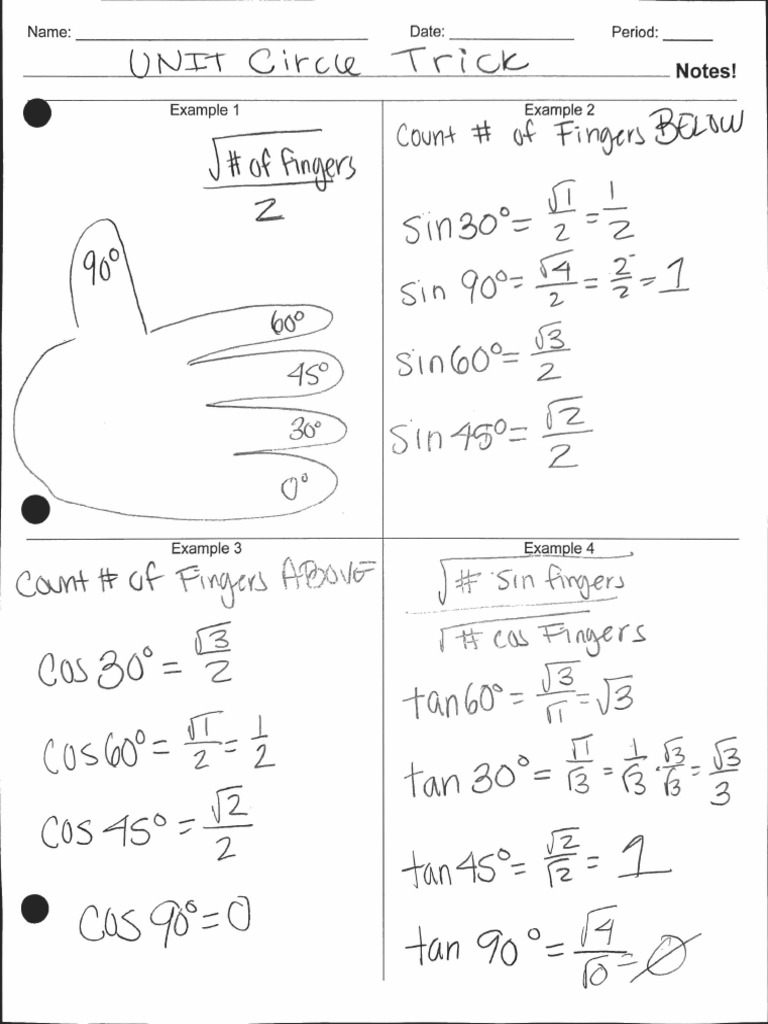 Name: ____________ Date: ____________ Period: ______
UNIT Circle Trick
Notes!
Example 1
√# of fingers / 2
90°
60°
45°
30°
0°
Example 2
Count # of Fingers BELOW
sin 30° = √1/2 = 1/2
sin 90° = √4/2 = 2/2 = 1
sin 60° = √3/2
sin 45° = √2/2
Example 3
Count # of Fingers ABOVE
cos 30° = √3/2
cos 60° = √1/2 = 1/2
cos 45° = √2/2
cos 90° = 0
Example 4
√# sin fingers / √# cos Fingers
tan 60° = √3/√1 = √3
tan 30° = √1/√3 = 1/√3 · √3/√3 = √3/3
tan 45° = √2/√2 = 1
tan 90° = √4/√0 = ∅